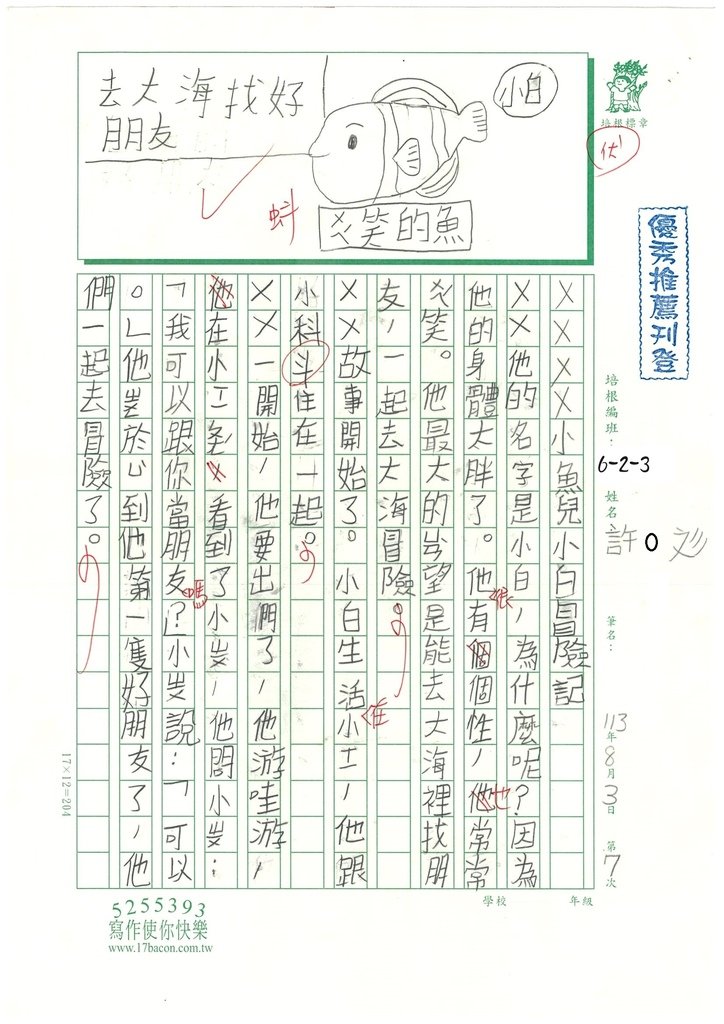 去大海找好
朋友
小白
蚪
ㄞ笑的魚
培根標章
優
優秀推薦刊登
培根編班：
6-2-3
姓名：
許O
筆名：
113年8月3日 第7次
XXXX小魚兒小白冒險記
XX他的名字是小白，為什麼呢？因為
他的身體太胖了。他有個個性，他常常
笑。他最大的望是能去大海裡找朋
友，一起去大海冒險。
XX故事開始了。小白生活小工，他跟
小科斗住在一起。
XX一開始，他要出們了，他游哇游，
他在小工看到了小，他問小：
「我可以跟你當朋友？」小說：「可以
。」他於心到他第一隻好朋友了，他
們一起去冒險了。
很
也
在
嗎
17×12=204
學校 年級
5255393
寫作使你快樂
www.17bacon.com.tw